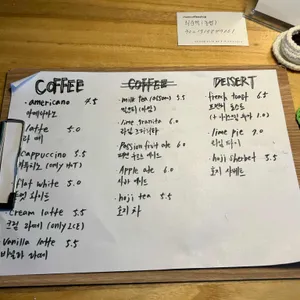 COFFEE
americano 4.5
아메리카노
latte 5.0
라떼
Cappuccino 5.5
카푸치노 (only HOT)
flat white 5.0
Cream latte 5.5
크림 라떼 (only ICE)
Vanilla latte 5.5
바닐라 라떼
COFFEE
milk tea (assam) 5.5
밀크티 (아쌈)
lime granita 6.0
라임 그라니따
Passion fruit ade 6.0
Apple ade 6.0
hoji tea 5.5
호지 차
DESSERT
french toast 6.5
프렌치 토스트
1.0
lime pie 7.0
라임 파이
hoji sherbet 5.5
호지 샤베트